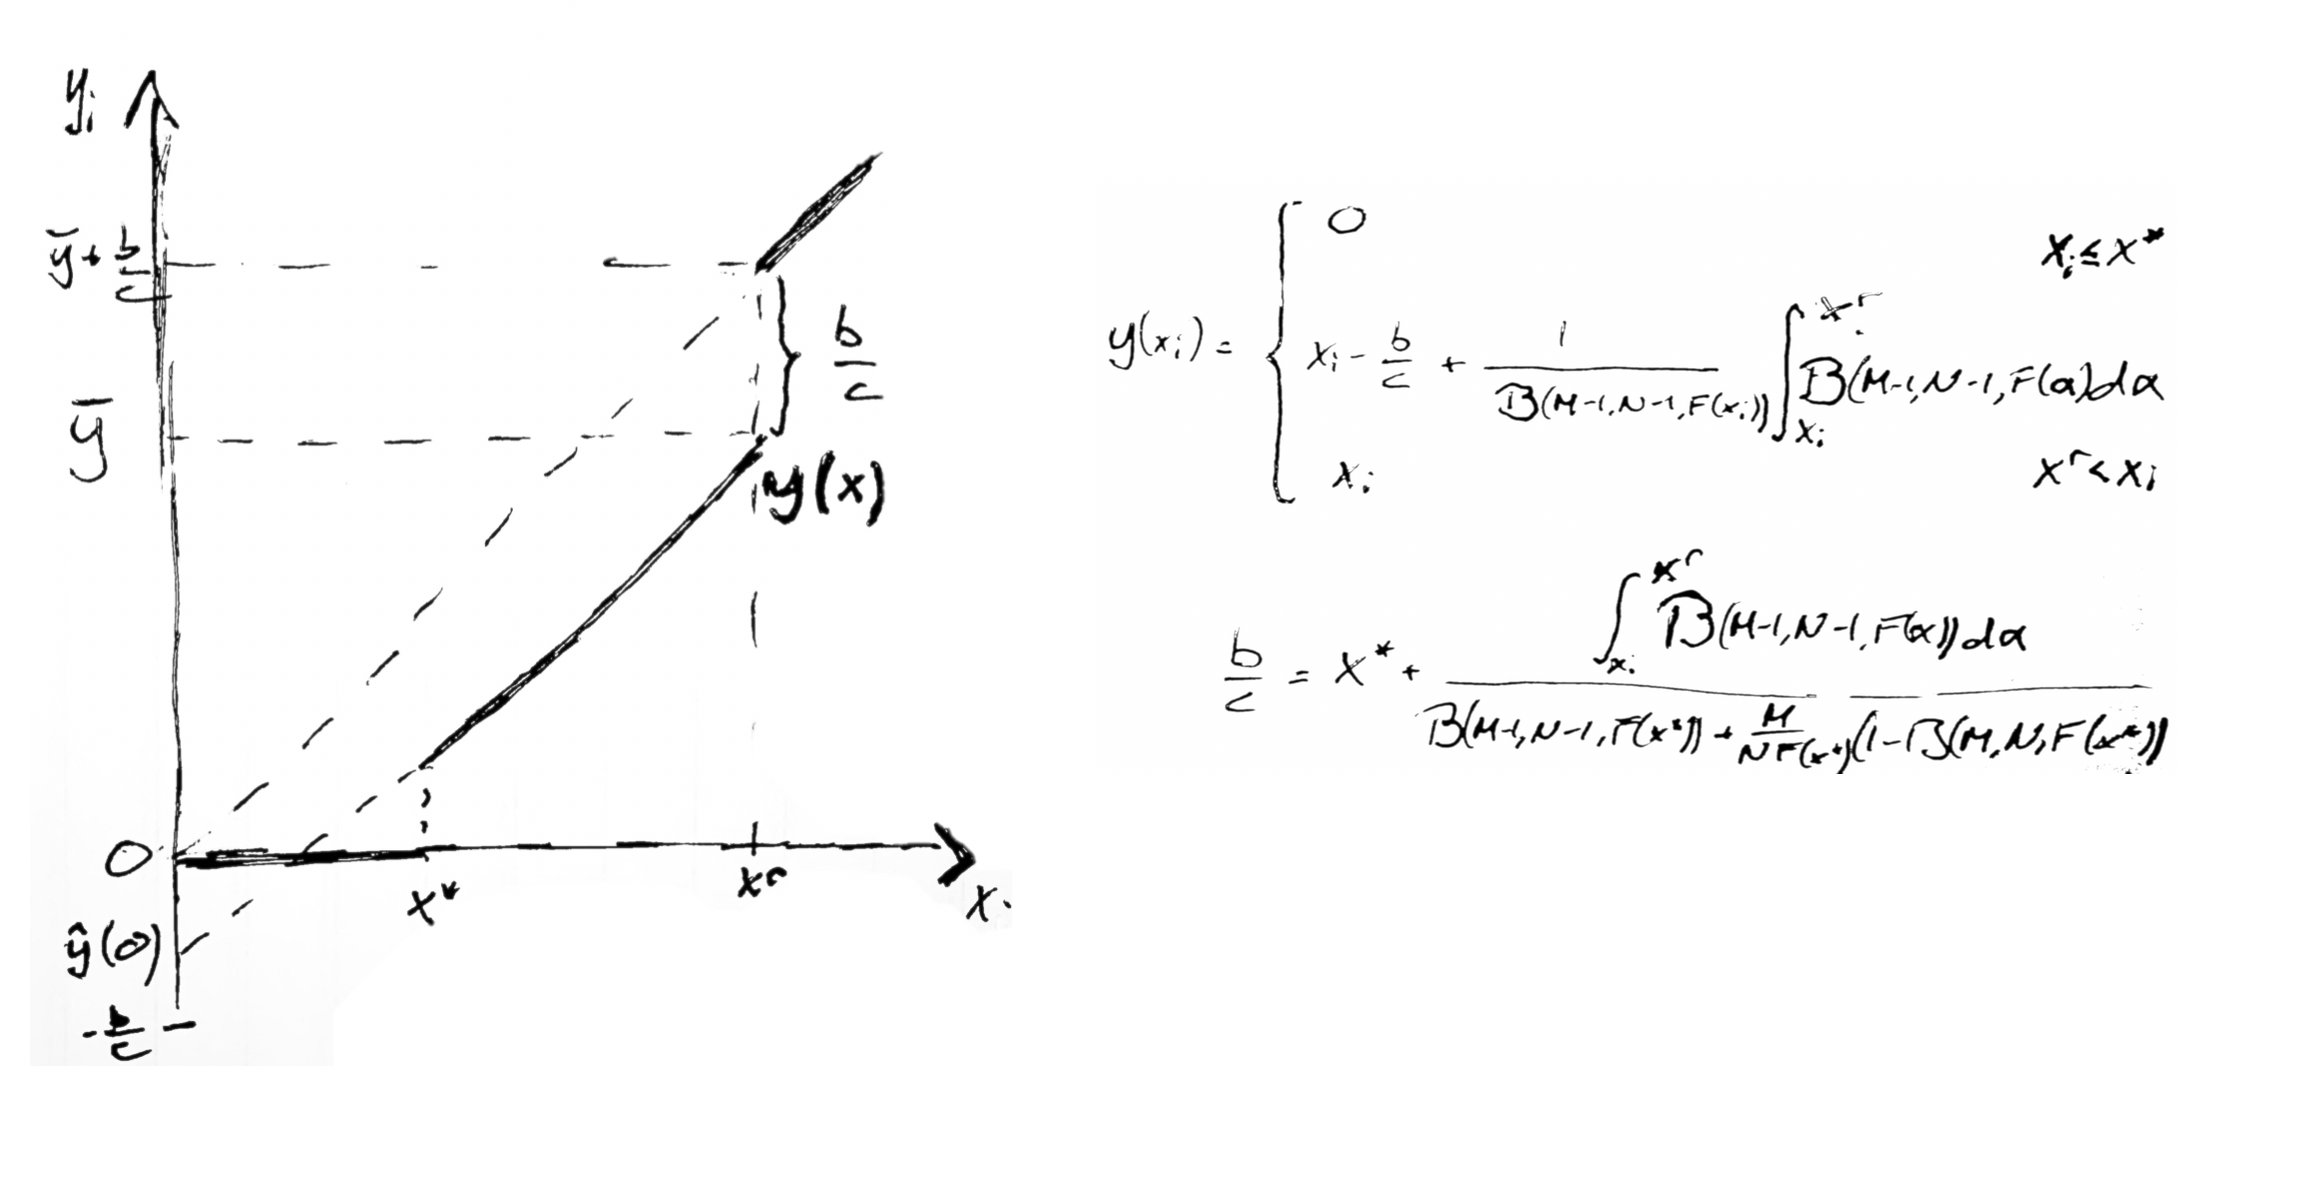 yᵢ
ȳ + b/c
b/c
ȳ
y(x)
0
x*
xʳ
xᵢ
ŷ(0)
-b/c
y(xᵢ) = {
0    xᵢ ≤ x*
xᵢ - b/c + 1/B(M-1,N-1,F(xᵢ)) ∫_{xᵢ}^{xʳ} B(M-1,N-1,F(α)dα
xᵢ    xʳ < xᵢ
b/c = x* + ∫_{xᵢ}^{xʳ} B(M-1,N-1,F(α))dα / B(M-1,N-1,F(x*)) + M/NF(x*) (1-B(M,N,F(x*))